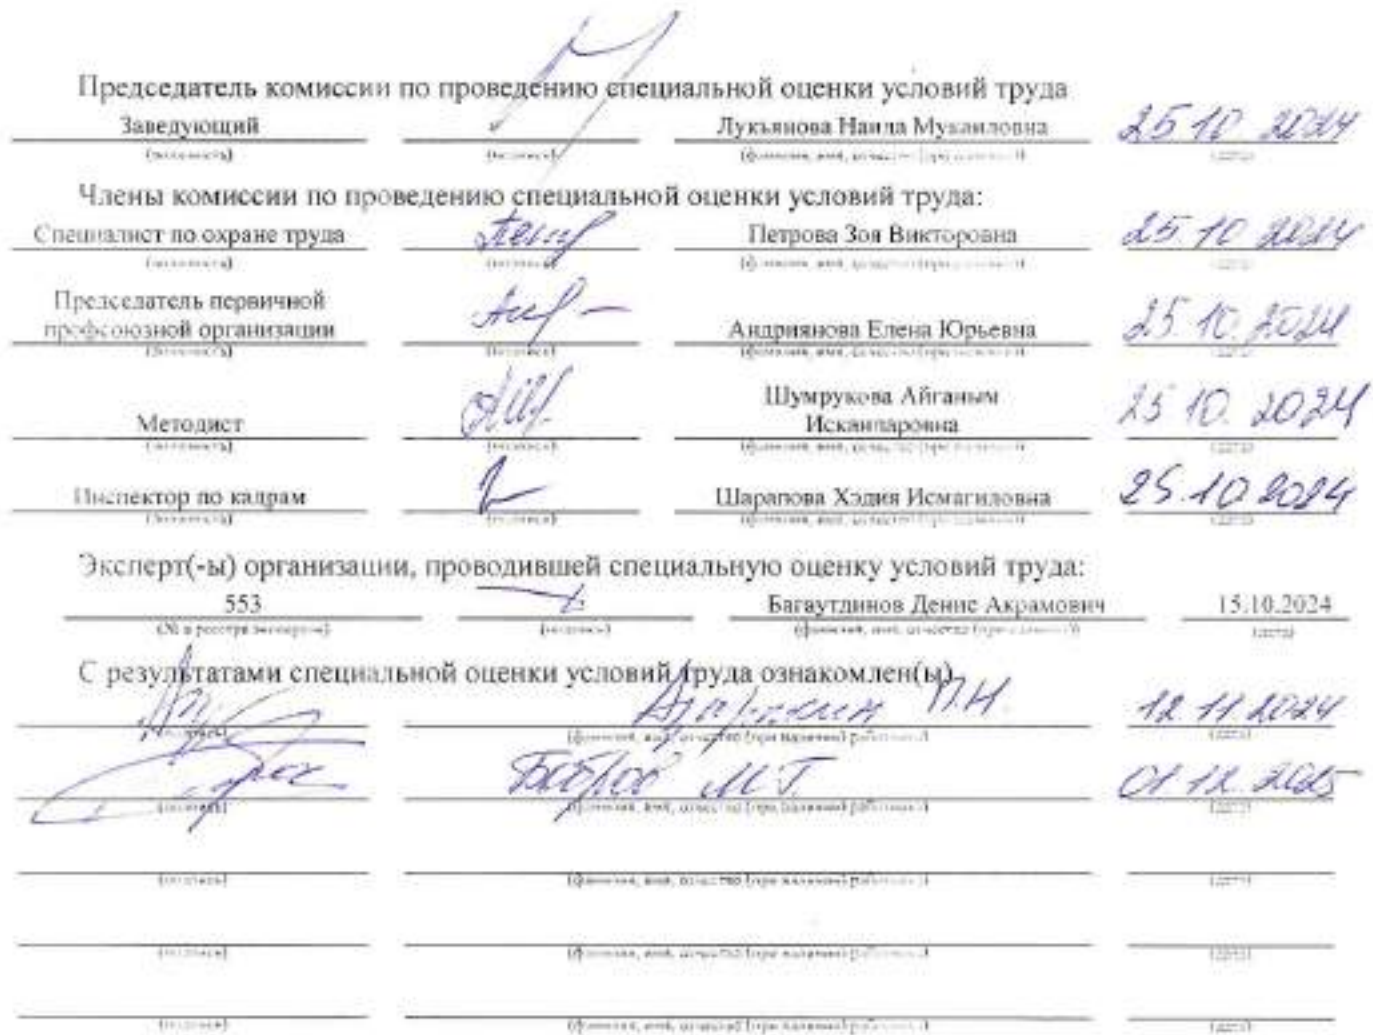 Председатель комиссии по проведению специальной оценки условий труда
Заведующий Лукьянова Наила Мукаиловна 25.10.2024
(должность) (подпись) (фамилия, имя, отчество (при наличии)) (дата)
Члены комиссии по проведению специальной оценки условий труда:
Специалист по охране труда Петрова Зоя Викторовна 25.10.2024
(должность) (подпись) (фамилия, имя, отчество (при наличии)) (дата)
Председатель первичной
профсоюзной организации Андриянова Елена Юрьевна 25.10.2024
(должность) (подпись) (фамилия, имя, отчество (при наличии)) (дата)
Шумрукова Айганым
Методист Искандаровна 25.10.2024
(должность) (подпись) (фамилия, имя, отчество (при наличии)) (дата)
Инспектор по кадрам Шарапова Хэдия Исмагиловна 25.10.2024
(должность) (подпись) (фамилия, имя, отчество (при наличии)) (дата)
Эксперт(-ы) организации, проводившей специальную оценку условий труда:
553 Багаутдинов Денис Акрамович 15.10.2024
(№ в реестре экспертов) (подпись) (фамилия, имя, отчество (при наличии)) (дата)
С результатами специальной оценки условий труда ознакомлен(ы)
П.Н. 12.11.2024
(подпись) (фамилия, имя, отчество (при наличии) работника) (дата)
Бобров М.Г. 01.12.2025
(подпись) (фамилия, имя, отчество (при наличии) работника) (дата)
(подпись) (фамилия, имя, отчество (при наличии) работника) (дата)
(подпись) (фамилия, имя, отчество (при наличии) работника) (дата)
(подпись) (фамилия, имя, отчество (при наличии) работника) (дата)